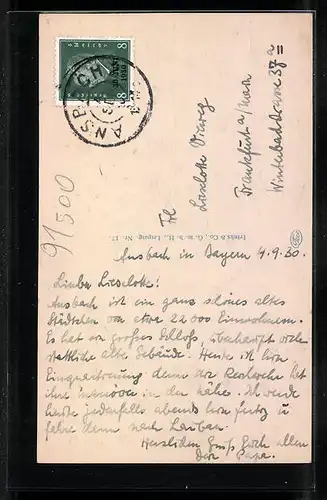 8 8
ANSBACH
Frl
Lieselotte
Frankfurt a/Main
37 a
91500
Trinks & Co., G. m. b. H., Leipzig. Nr. 17.
Ansbach in Bayern 4.9.30.
Liebe Lieselotte!
Ansbach ist ein ganz schönes altes
Städtchen von etwa 22 000 Einwohnern.
Es hat ein großes Schloß, überhaupt viele
stattliche alte Gebäude. Heute ist hier
Einquartierung denn die Reichswehr hat
ihre Manöver in der Nähe. Ich werde
heute jedenfalls abends hier fertig u
fahre dann nach
Herzlichen Gruß Euch allen
Dein Papa.